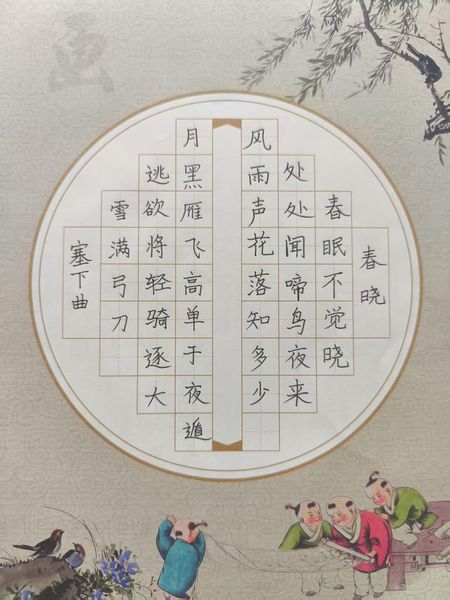 春晓
春眠不觉晓
处处闻啼鸟夜来
风雨声花落知多少
月黑雁飞高单于夜遁
逃欲将轻骑逐大
雪满弓刀
塞下曲